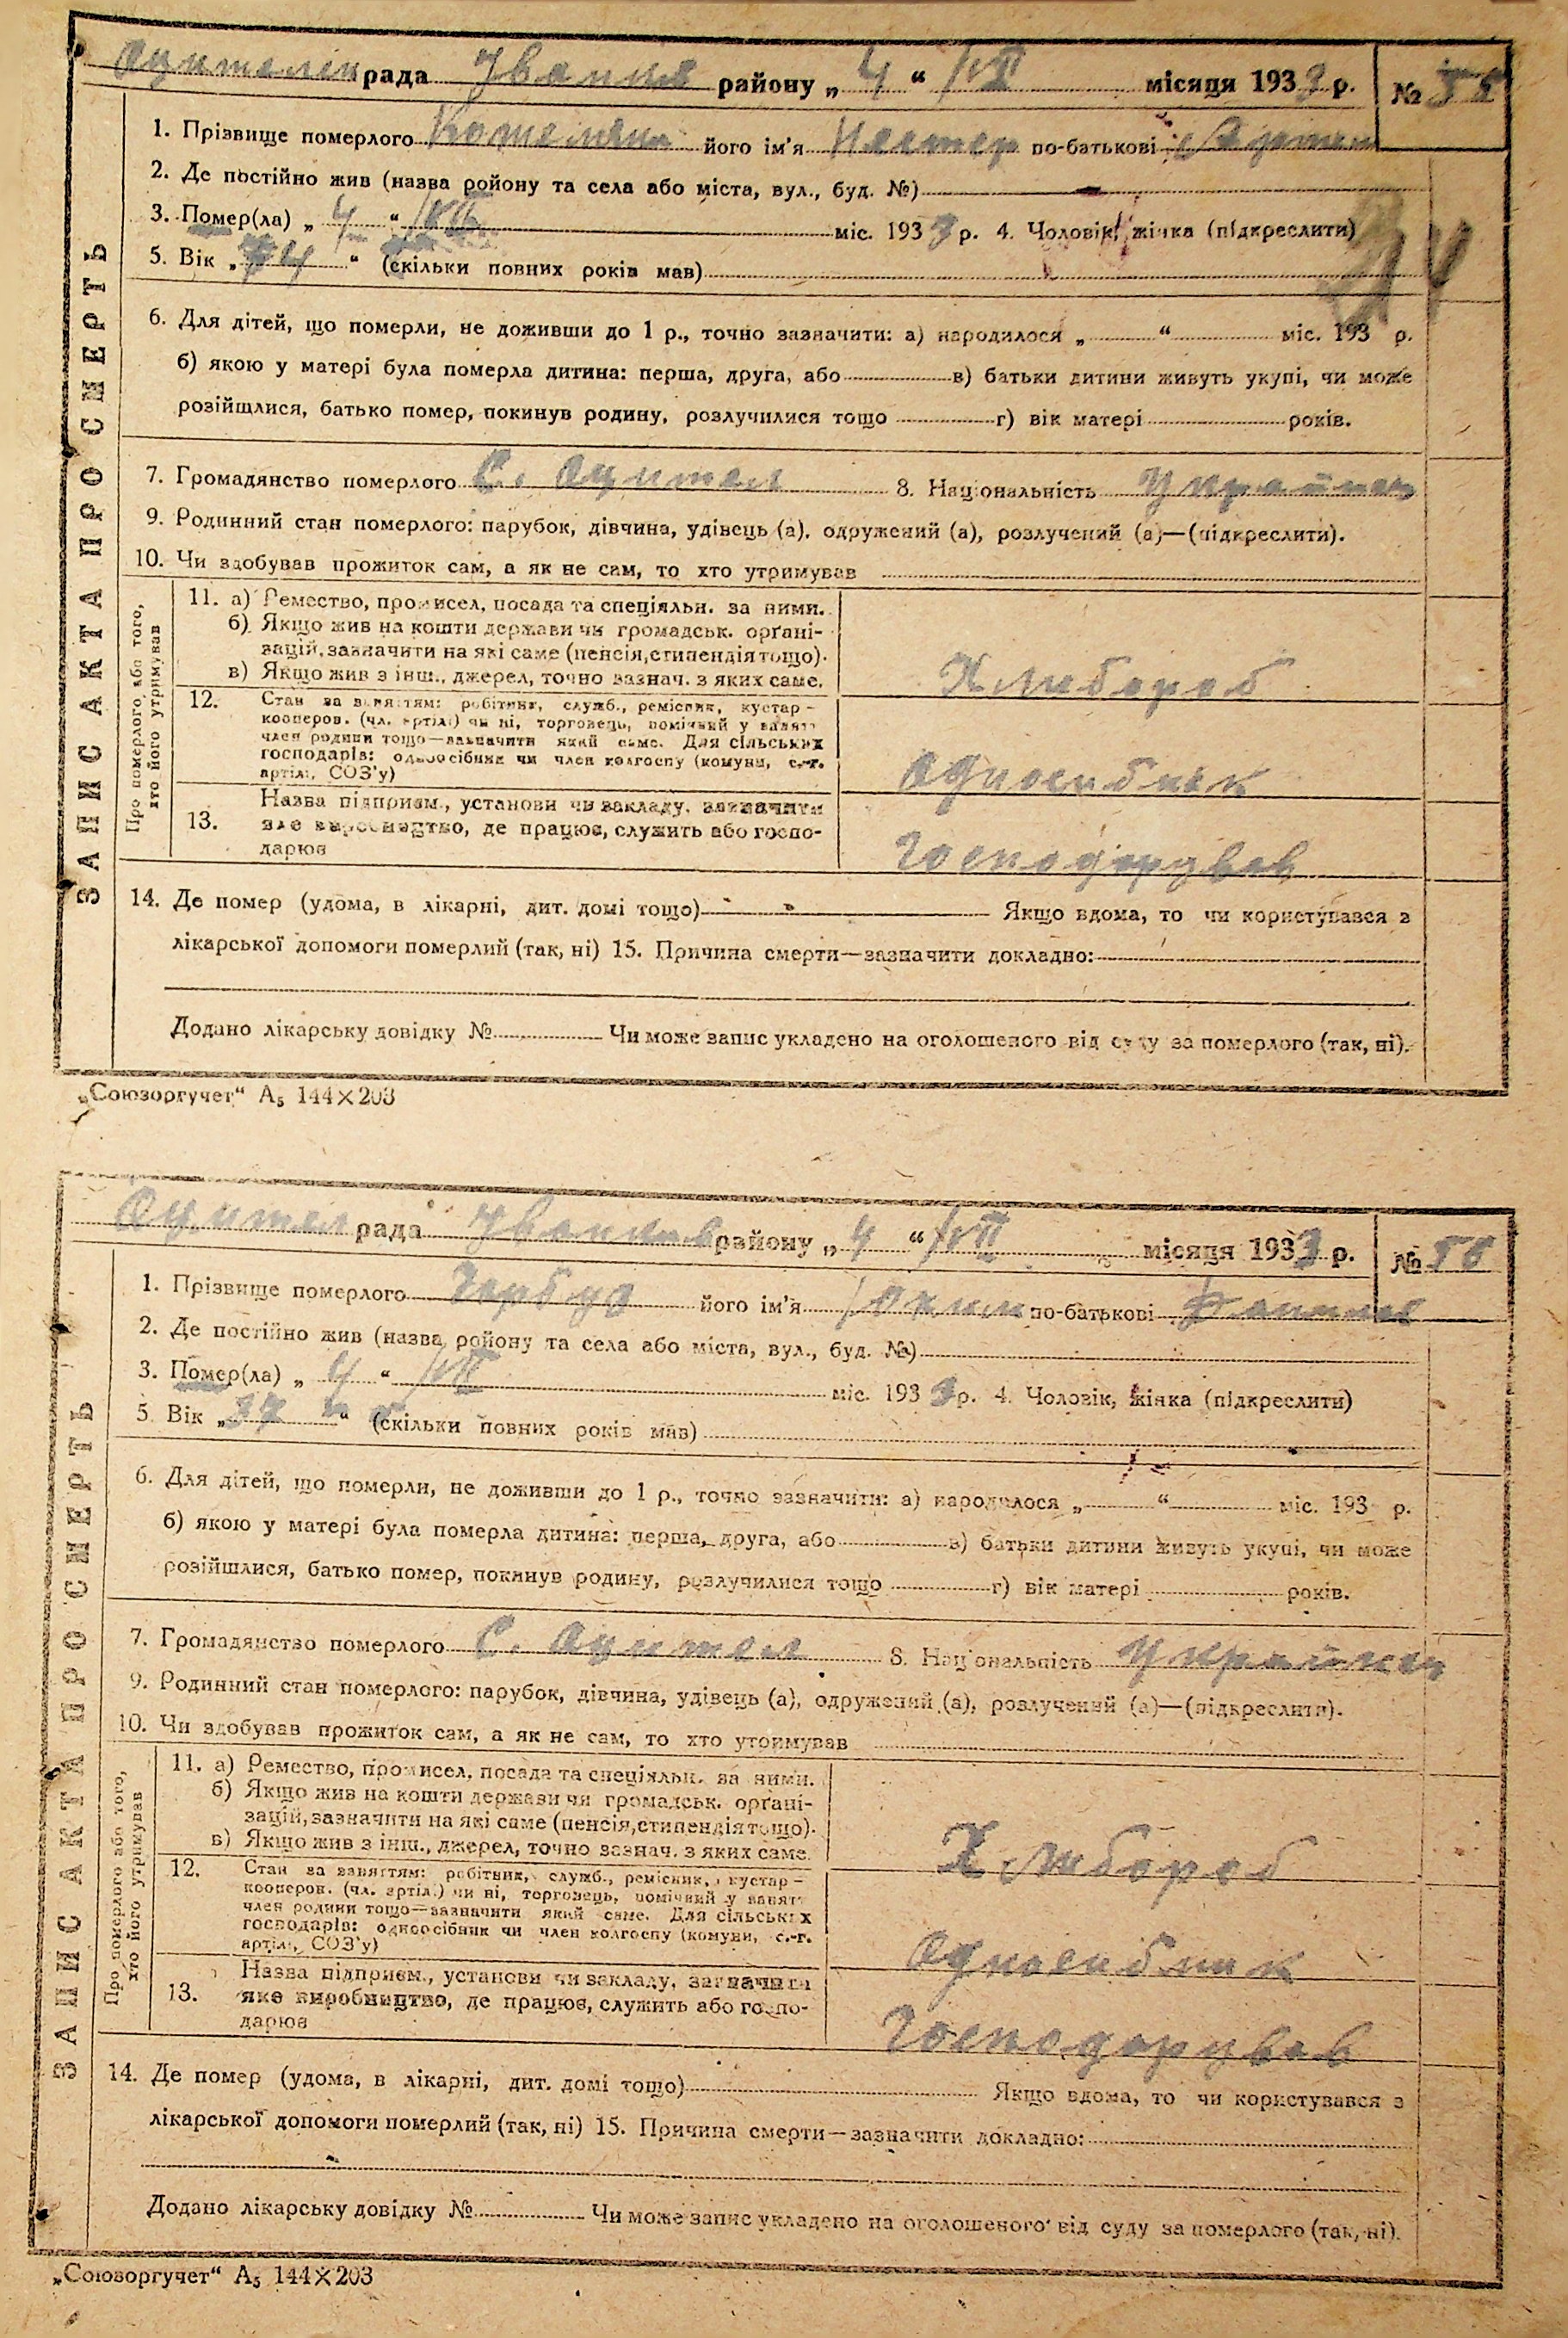 рада району „ 4 “ VII місяця 1933 р. №
ЗАПИС АКТА ПРО СМЕРТЬ
1. Прізвище померлого його ім'я Нестер по-батькові
2. Де постійно жив (назва району та села або міста, вул., буд. №)
3. Помер(ла) „ 4 “ VII міс. 1933 р. 4. Чоловік, жінка (підкреслити)
5. Вік „ “ (скільки повних років мав)
6. Для дітей, що померли, не доживши до 1 р., точно зазначити: а) народилося „ “ міс. 193 р.
б) якою у матері була померла дитина: перша, друга, або в) батьки дитини живуть укупі, чи може
розійшлися, батько помер, покинув родину, розлучилися тощо г) вік матері років.
7. Громадянство померлого 8. Національність
9. Родинний стан померлого: парубок, дівчина, удівець (а), одружений (а), розлучений (а)—(підкреслити).
10. Чи здобував прожиток сам, а як не сам, то хто утримував
Про померлого або того, хто його утримував
11. а) Ремество, промисел, посада та спеціяльн. за ними.
б) Якщо жив на кошти держави чи громадськ. орґані-
зацій, зазначити на які саме (пенсія, стипендія тощо).
в) Якщо жив з інш., джерел, точно зазнач. з яких саме.
Хлибороб
12. Стан за заняттям: робітник, служб., ремісник, кустар –
кооперов. (чл. артілі) чи ні, торговець, помічний у занят.
член родини тощо—зазначити який саме. Для сільських
господарів: одноосібник чи член колгоспу (комуни, с.-г.
артілі, СОЗ'у)
Односибник
13. Назва підприєм., установи чи закладу, зазначити
яке виробництво, де працює, служить або госпо-
дарює
Господарував
14. Де помер (удома, в лікарні, дит. домі тощо) Якщо вдома, то чи користувався з
лікарської допомоги померлий (так, ні) 15. Причина смерти—зазначити докладно:
Додано лікарську довідку № Чи може запис укладено на оголошеного від суду за померлого (так, ні).
„Союзоргучет“ А5 144×203
рада району „ 4 “ VII місяця 1933 р. №
ЗАПИС АКТА ПРО СМЕРТЬ
1. Прізвище померлого Гарбуз його ім'я по-батькові
2. Де постійно жив (назва району та села або міста, вул., буд. №)
3. Помер(ла) „ 4 “ VII міс. 1933 р. 4. Чоловік, жінка (підкреслити)
5 Вік „ 37 “ (скільки повних років мав)
6. Для дітей, що померли, не доживши до 1 р., точно зазначити: а) народилося „ “ міс. 193 р.
б) якою у матері була померла дитина: перша, друга, або в) батьки дитини живуть укупі, чи може
розійшлися, батько помер, покинув родину, розлучилися тощо г) вік матері років.
7. Громадянство померлого 8. Національність
9. Родинний стан померлого: парубок, дівчина, удівець (а), одружений (а), розлучений (а)—(підкреслити).
10. Чи здобував прожиток сам, а як не сам, то хто утримував
Про померлого або того, хто його утримував
11. а) Ремество, промисел, посада та спеціяльн. за ними.
б) Якщо жив на кошти держави чи громадськ. орґані-
зацій, зазначити на які саме (пенсія, стипендія тощо).
в) Якщо жив з інш., джерел, точно зазнач. з яких саме.
Хлибороб
12. Стан за заняттям: робітник, служб., ремісник, кустар –
кооперов. (чл. артілі) чи ні, торговець, помічний у занят.
член родини тощо—зазначити який саме. Для сільських
господарів: одноосібник чи член колгоспу (комуни, с.-г.
артілі, СОЗ'у)
Односибник
13. Назва підприєм., установи чи закладу, зазначити
яке виробництво, де працює, служить або госпо-
дарює
Господарував
14. Де помер (удома, в лікарні, дит. домі тощо) Якщо вдома, то чи користувався з
лікарської допомоги померлий (так, ні) 15. Причина смерти—зазначити докладно:
Додано лікарську довідку № Чи може запис укладено на оголошеного від суду за померлого (так, ні).
„Союзоргучет“ А5 144×203